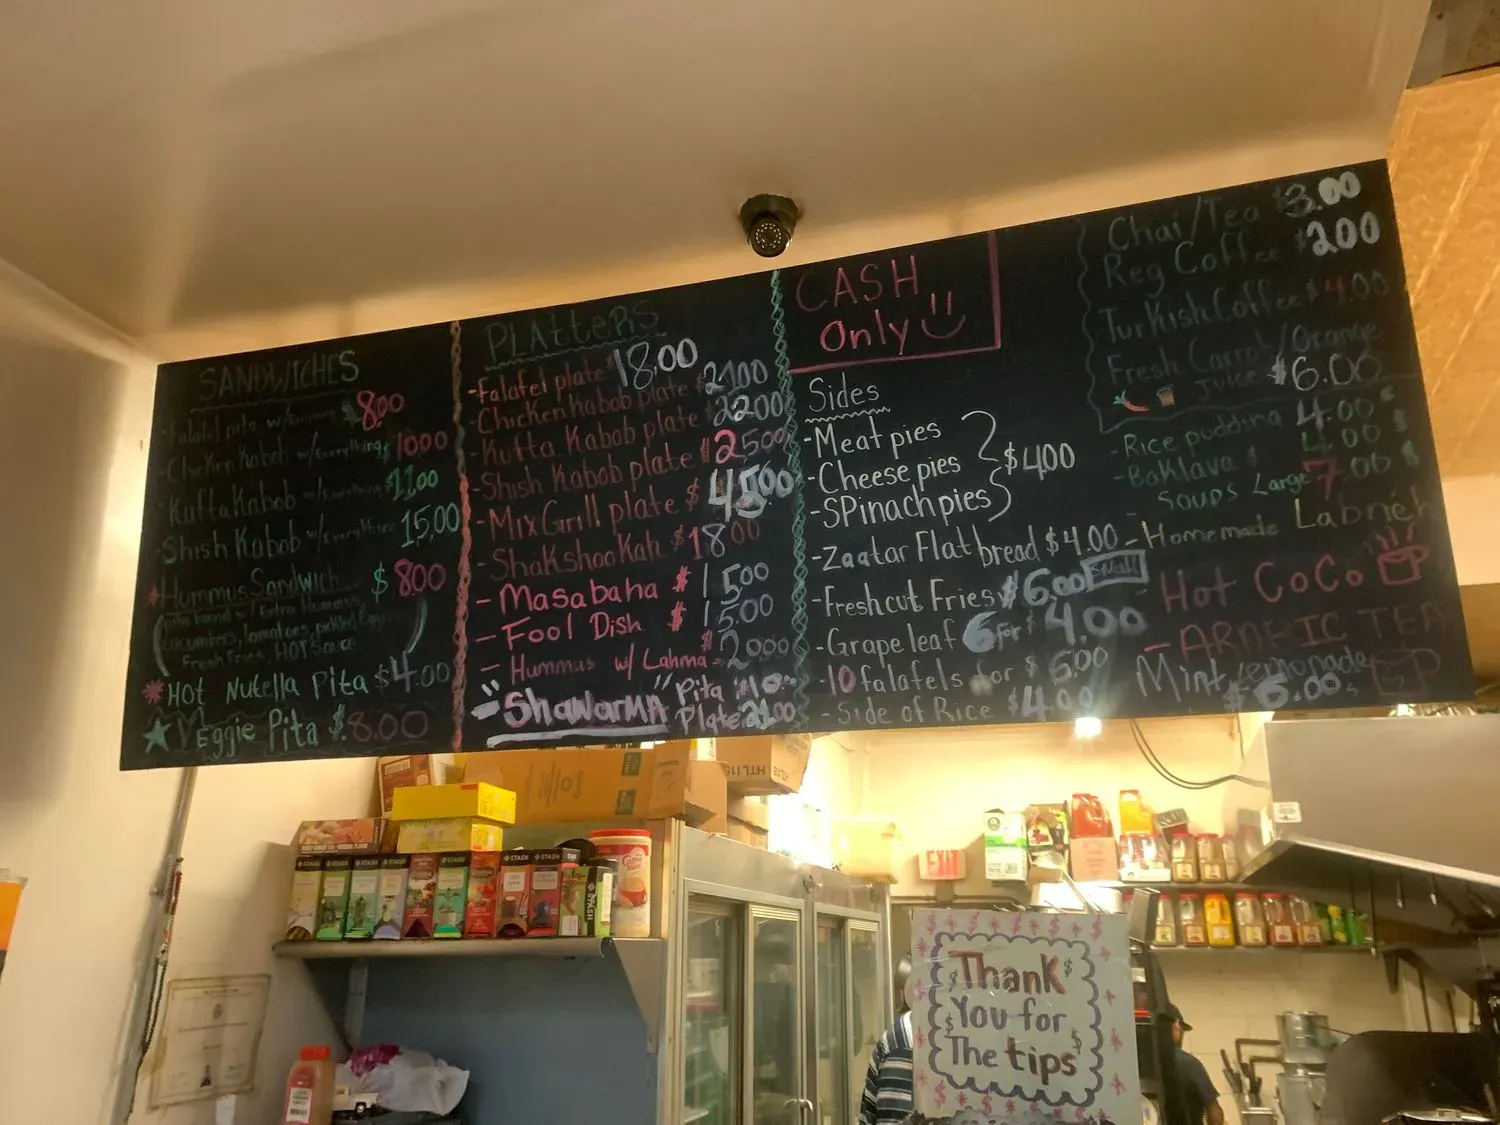 SANDWICHES
-Falafel pita w/Everything $8.00
-Chicken Kabob w/Everything $10.00
-Kufta Kabob w/Everything $11.00
-Shish Kabob w/Everything 15.00
*Hummus Sandwich $8.00
(pita bread w/ Extra Hummus,
cucumbers, tomatoes, pickled
Fresh Fries, HOT Sauce)
*HOT Nutella Pita $4.00
★Veggie Pita $8.00
PLATTERS
-Falafel plate $18.00
-Chicken Kabob plate $21.00
-Kufta Kabob plate $22.00
-Shish Kabob plate $25.00
-Mix Grill plate $45.00
-ShakshooKah $18.00
-Masabaha $15.00
-Fool Dish $15.00
-Hummus w/ Lahma-$20.00
-"ShawarMA" Pita $10.00
Plate $21.00
CASH
Only
Sides
-Meat pies
-Cheese pies $4.00
-SPinach pies
-Zaatar Flat bread $4.00
-Fresh cut Fries $6.00 Small
-Grape leaf 6 for $4.00
-10 falafels for $5.00
-Side of Rice $4.00
Chai/Tea $3.00
Reg Coffee $2.00
Turkish Coffee $4.00
Fresh Carrot/Orange
Juice $6.00
-Rice pudding 4.00
-Baklava $4.00
-Soups Large 7.00
-Homemade Labneh
-Hot CoCo
-ARABIC TEA
Mint Lemonade
$6.00
HTL 115
STASH
EXIT
Thank
You for
The tips